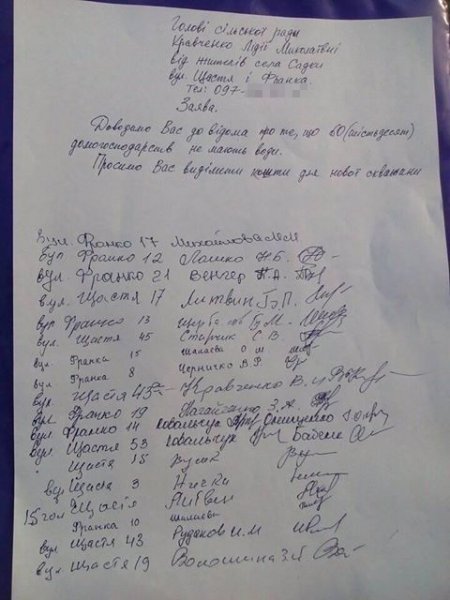 Голові сільської ради
Кравченко Лідії Миколаївні
від жителів села Садки
вул. Щастя і Франка.
Тел: 097-
Заява.
Доводимо Вас до відома про те, що 60 (шістьдесят)
домогосподарств не мають води.
Просимо Вас виділити кошти для нової скважини
вул. Франко 17
вул Франко 12 Лашко Н.Б.
вул. Франко 21 Венгер Н.А.
вул. Щастя 17 Литвин Г.П.
вул Франко 13
вул. Щастя 45 Старчик С.В.
вул Франка 15 О.М.
вул Франка 8 Черничко В.Р.
вул Щастя 45 Кравченко В.И
вул. Франко 19 З.А.
вул Франко 14 Ковальчук Онищенко
вул Щастя 53 Ковальчук
Щастя 15
вул Щастя 3
15 Щастя
Франка 10
вул Щастя 43 Рудаков И.М
вул Щастя 19 Волошина З.И